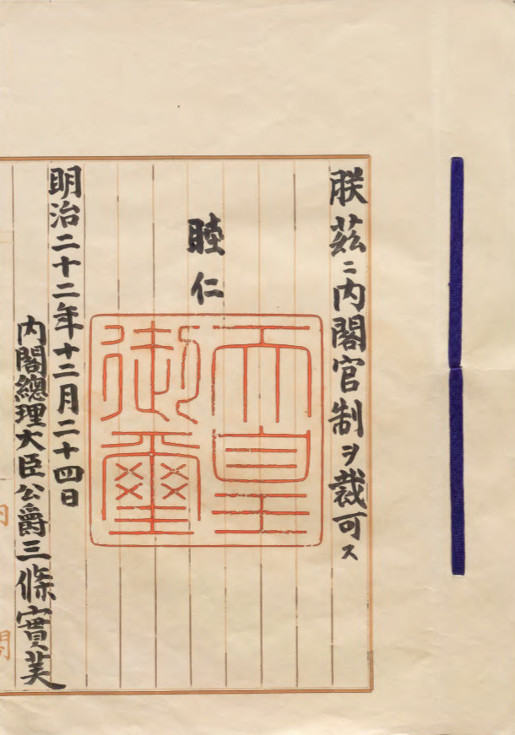 朕茲ニ内閣官制ヲ裁可ス
睦仁
天皇
御璽
明治二十二年十二月二十四日
内閣總理大臣公爵三條實美
内閣